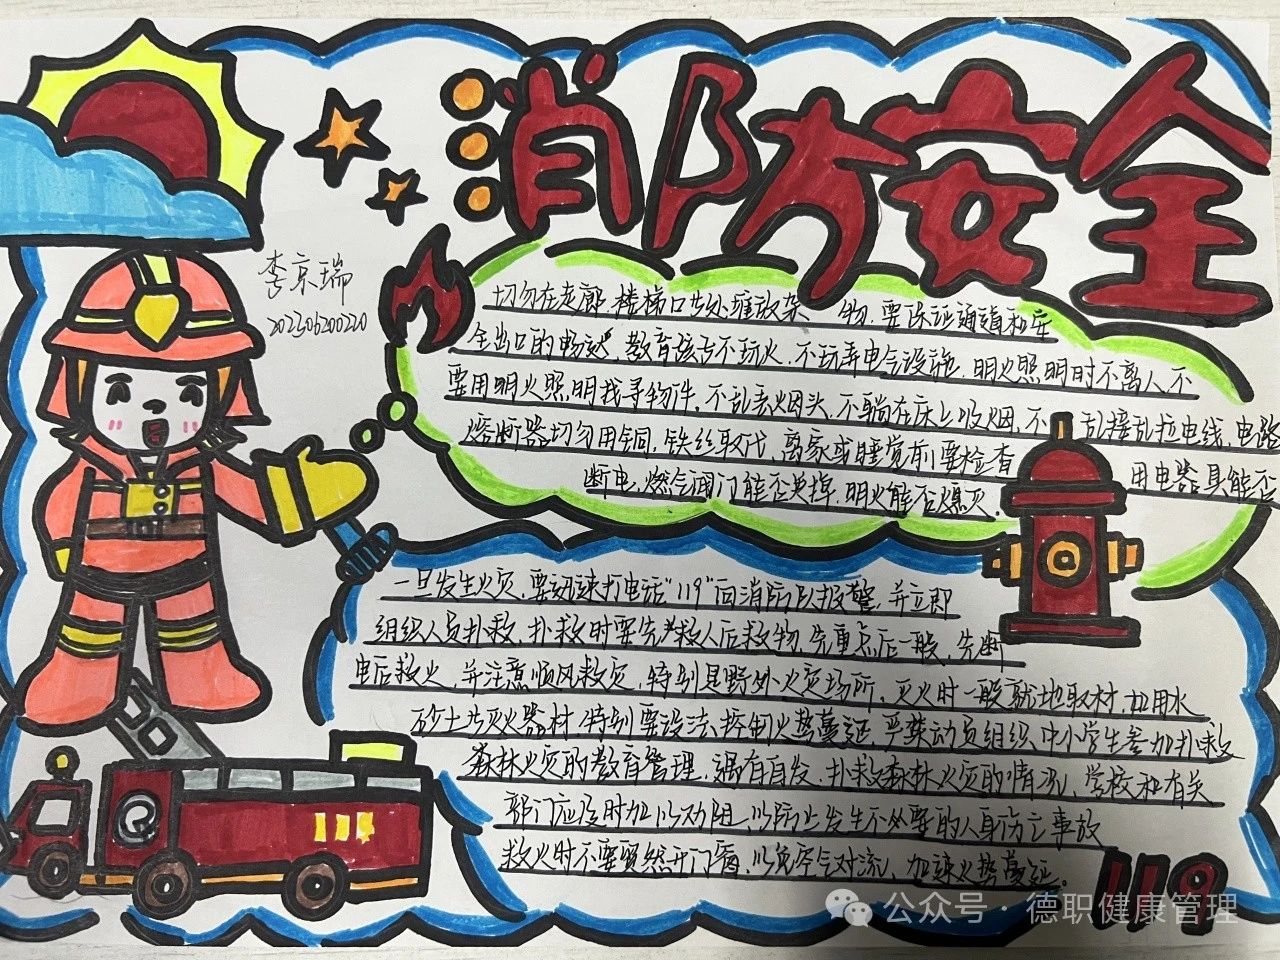 消防安全
李京瑞
202306200220
切勿在走廊、楼梯口等处堆放杂 物,要保证通道和安
全出口的畅达,教育孩子不玩火,不玩弄电气设施,明火照明时不离人,不
要用明火照明找寻物件,不乱丢烟头,不躺在床上吸烟,不 乱接乱拉电线,电路
熔断器切勿用铜,铁丝取代,离家或睡觉前要检查 用电器具能否
断电,燃气阀门能否关掉,明火能否熄灭。
一旦发生火灾,要迅速打电话"119"向消防队报警,并立即
组织人员扑救,扑救时要先救人后救物,先重点后一般,先断
电后救火,并注意顺风救灾,特别是野外火灾场所,灭火时一般就地取材,如用水
砂土与灭火器材,特别要设法控制火势蔓延,严禁动员组织中小学生参加扑救
森林火灾的教育管理,遇有自发,扑救森林火灾的情况,学校和有关
部门应及时加以劝阻,以防止发生不必要的人身伤亡事故
救火时不要贸然开门窗,以免空气对流,加速火势蔓延。
119
公众号·德职健康管理